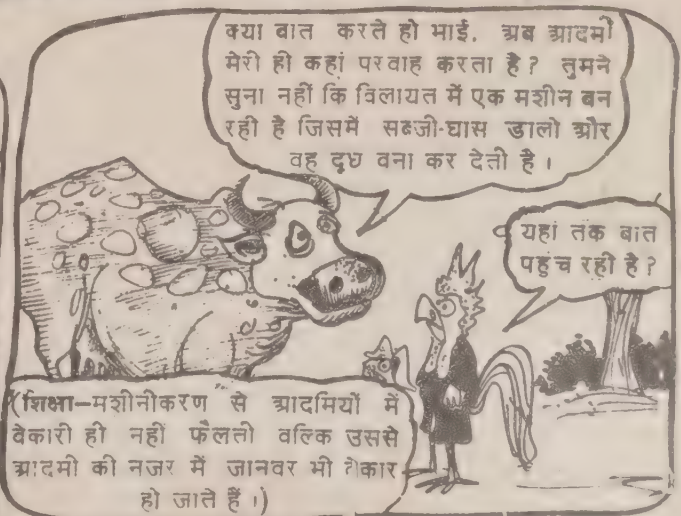 क्या बात करते हो भाई. अब आदमी
मेरी ही कहां परवाह करता है? तुमने
सुना नहीं कि विलायत में एक मशीन बन
रही है जिसमें सब्जी-घास डालो और
वह दूध बना कर देती है।
यहां तक बात
पहुंच रही है?
(शिक्षा—मशीनीकरण से आदमियों में
बेकारी ही नहीं फैलती बल्कि उससे
आदमी की नजर में जानवर भी बेकार
हो जाते हैं।)